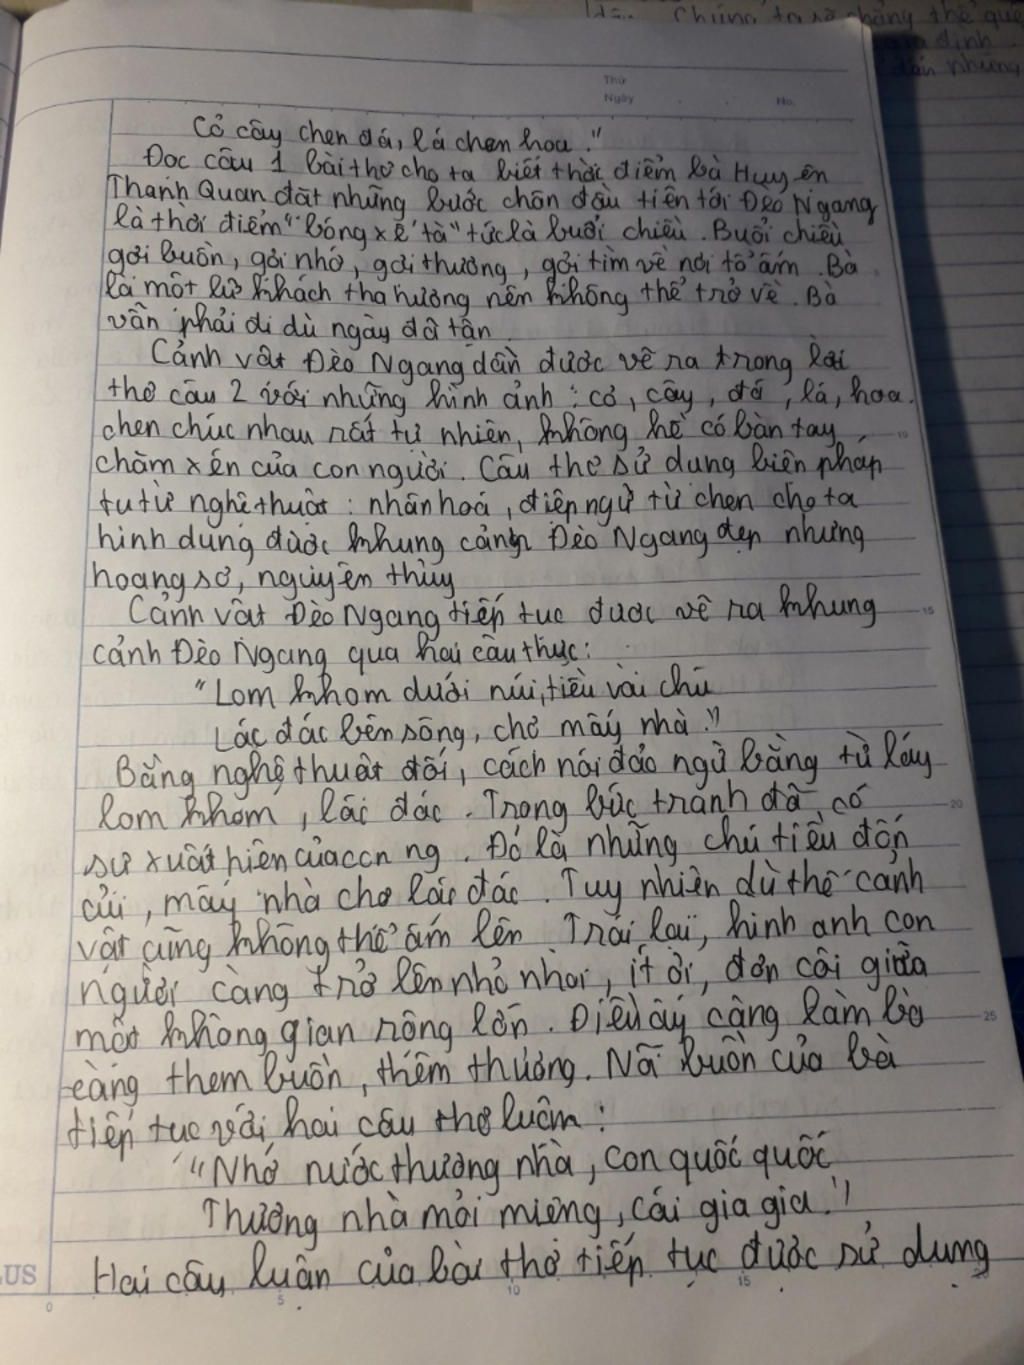 Chúng ta sẽ chẳng thể quê
định
những
Thứ
Ngày No.
Cỏ cây chen đá, lá chen hoa."
Đọc câu 1 bài thơ cho ta biết thời điểm bà Huyện
Thanh Quan đặt những bước chân đầu tiên tới Đèo Ngang
là thời điểm "bóng xế tà" tức là buổi chiều. Buổi chiều
gợi buồn, gợi nhớ, gợi thương, gợi tìm về nơi tổ ấm. Bà
là một lữ khách tha hương nên không thể trở về. Bà
vẫn phải đi dù ngày đã tận.
Cảnh vật Đèo Ngang dần được vẽ ra trong lời
thơ câu 2 với những hình ảnh: cỏ, cây, đá, lá, hoa.
chen chúc nhau rất tự nhiên, không hề có bàn tay
10
chăm xén của con người. Câu thơ sử dụng biện pháp
tu từ nghệ thuật: nhân hoá, điệp ngữ từ chen cho ta
hình dung được khung cảnh Đèo Ngang đẹp nhưng
hoang sơ, nguyên thủy
Cảnh vật Đèo Ngang tiếp tục được vẽ ra khung
15
cảnh Đèo Ngang qua hai câu thực:
"Lom khom dưới núi, tiều vài chú
Lác đác bên sông, chợ mấy nhà."
Bằng nghệ thuật đối, cách nói đảo ngữ bằng từ láy
lom khom, lác đác. Trong bức tranh đã có
20
sự xuất hiện của con ng. Đó là những chú tiều đốn
củi, mấy nhà chợ lác đác. Tuy nhiên dù thế cảnh
vật cũng không thể ấm lên Trái lại, hình anh con
người càng trở lên nhỏ nhoi, ít ỏi, đơn côi giữa
một không gian rộng lớn. Điều ấy càng làm bà
25
càng them buồn, thêm thương. Nỗ buồn của bà
tiếp tục với hai câu thơ luôn:
"Nhớ nước thương nhà, con quốc quốc
Thương nhà mỏi miệng, cái gia gia."
Hai câu luận của bài thơ tiếp tục được sử dụng
LUS
0 5 10 15 20